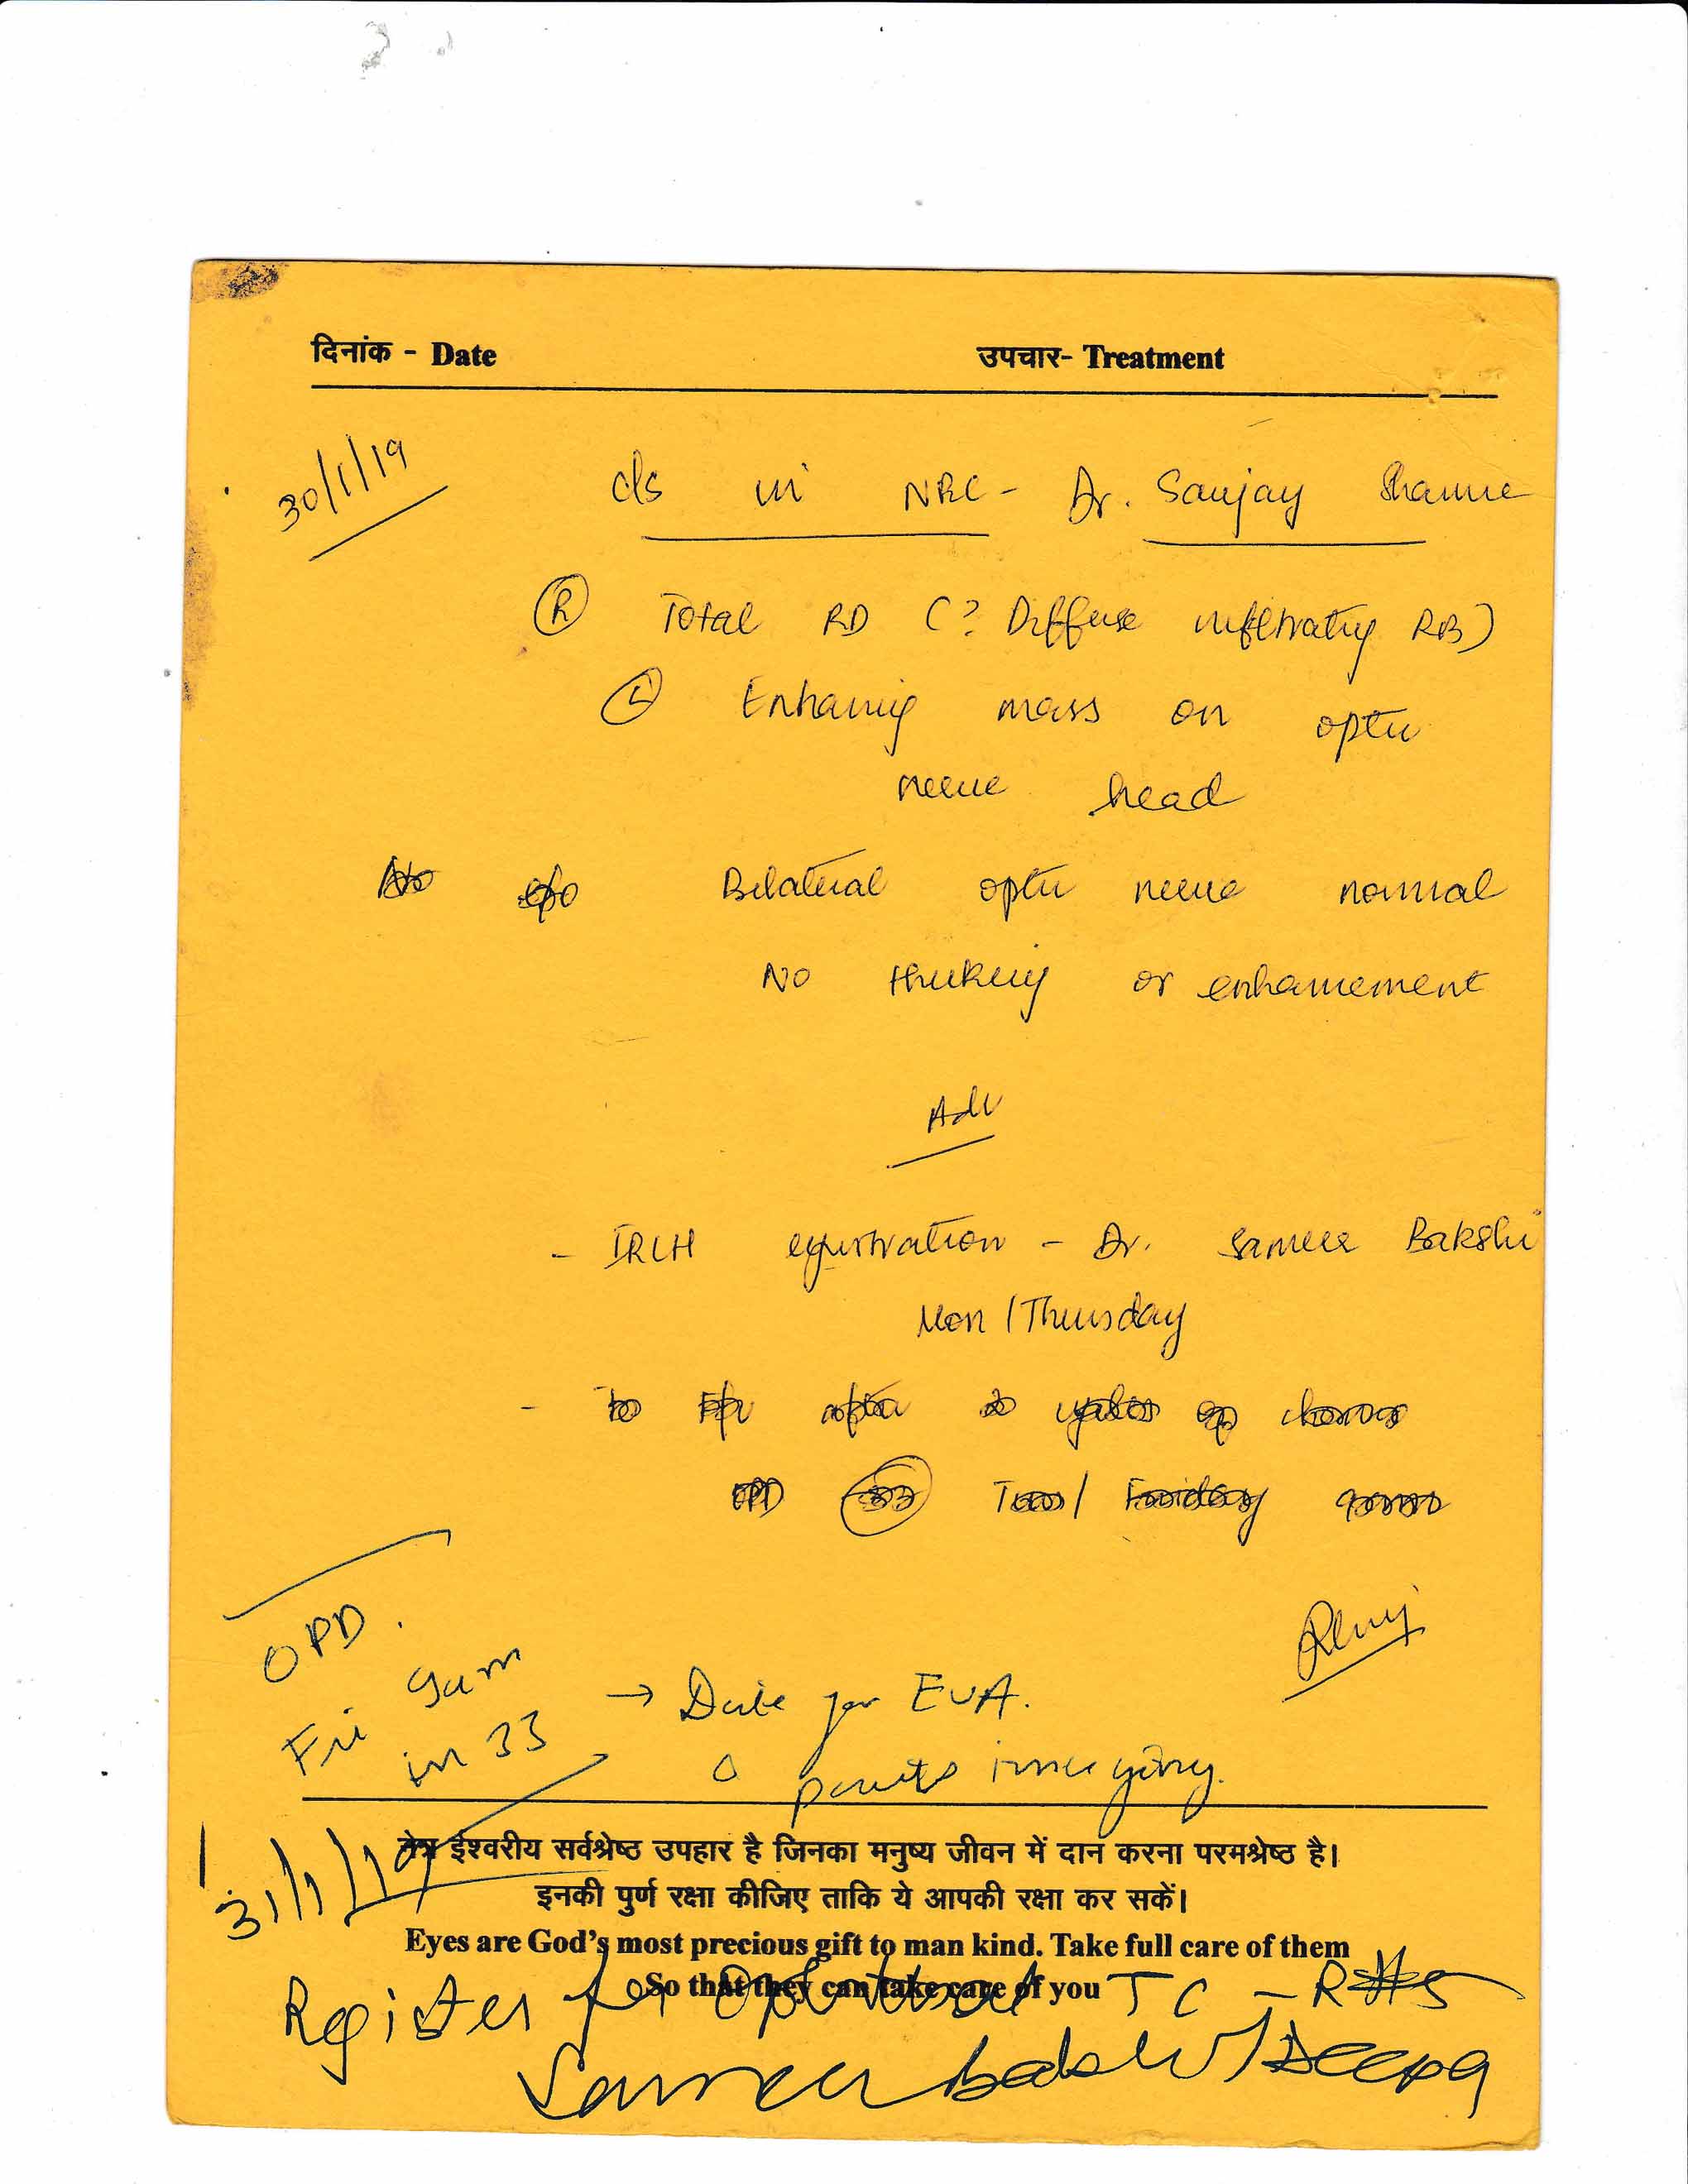 दिनांक - Date उपचार- Treatment
30/1/19
d/s in NRC - Dr. Sanjay Sharma
(R) Total RD (? Diffuse infiltrating RB)
(L) Enhancing mass on optic
nerve head
Bilateral optic nerve normal
No thickening or enhancement
Adv
- IRCH registration - Dr. Sameer Bakshi
Mon / Thursday
OPD.
Fri 9am
in 33
→ Date for EUA.
31/1/19
नेत्र ईश्वरीय सर्वश्रेष्ठ उपहार है जिनका मनुष्य जीवन में दान करना परमश्रेष्ठ है।
इनकी पुर्ण रक्षा कीजिए ताकि ये आपकी रक्षा कर सकें।
Eyes are God's most precious gift to man kind. Take full care of them
So that they can take care of you
Register for TC - R#5
Sameer Bakshi / Deepa